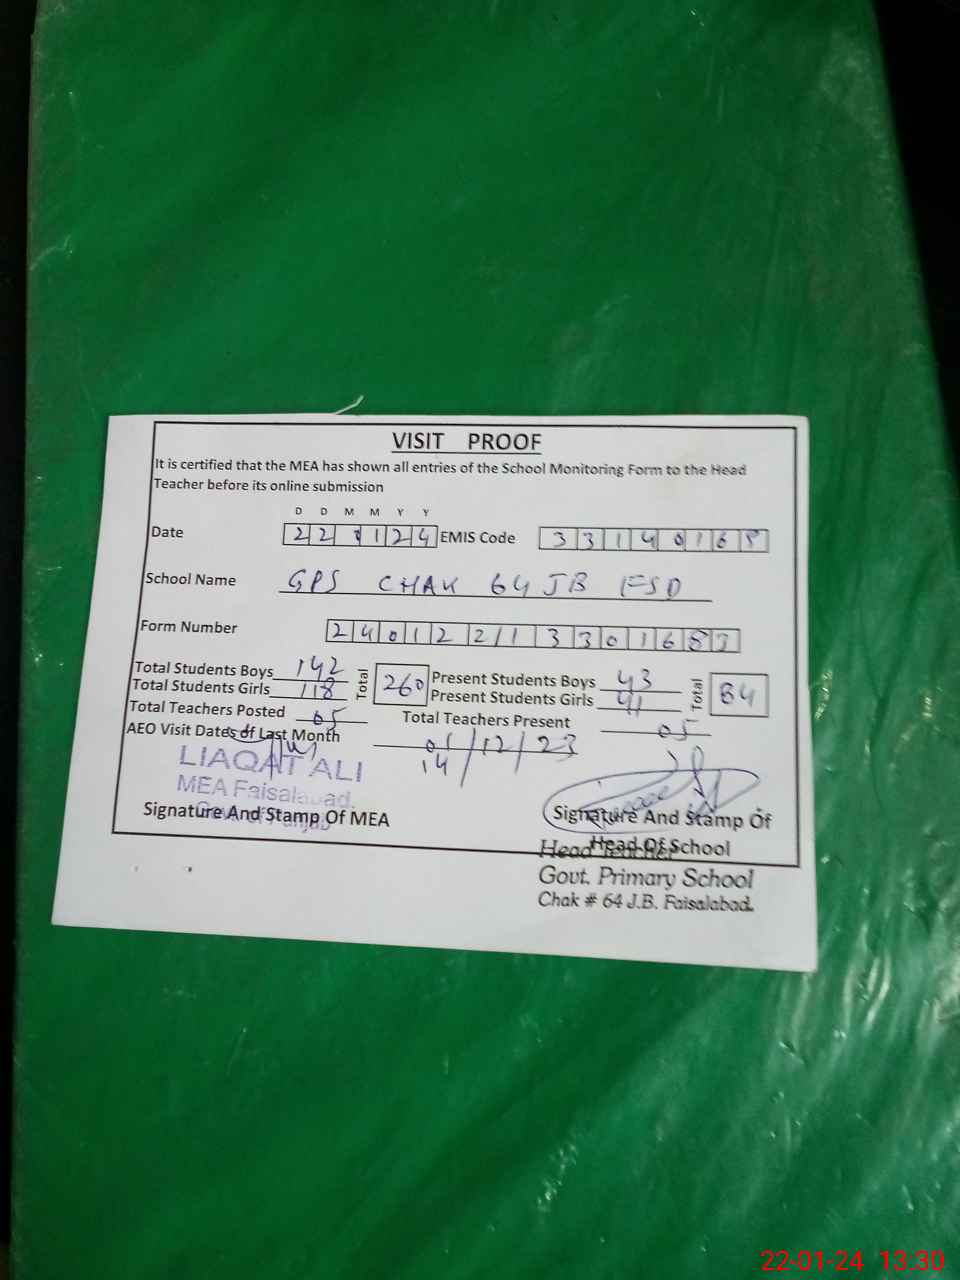 VISIT PROOF
It is certified that the MEA has shown all entries of the School Monitoring Form to the Head
Teacher before its online submission
D D M M Y Y
Date 22 0124 EMIS Code 33140168
School Name GPS CHAK 64 JB FSD
Form Number
Total Students Boys 142 Total 260 Present Students Boys 43 Total 84
Total Students Girls 118 Present Students Girls 41
Total Teachers Posted 05 Total Teachers Present 05
AEO Visit Dates of Last Month 01/12/23
14
LIAQAT ALI
MEA Faisalabad.
Govt of Punjab
Signature And Stamp Of MEA
Signature And Stamp Of
Head Of School
Head Teacher
Govt. Primary School
Chak # 64 J.B. Faisalabad.
22-01-24 13:30